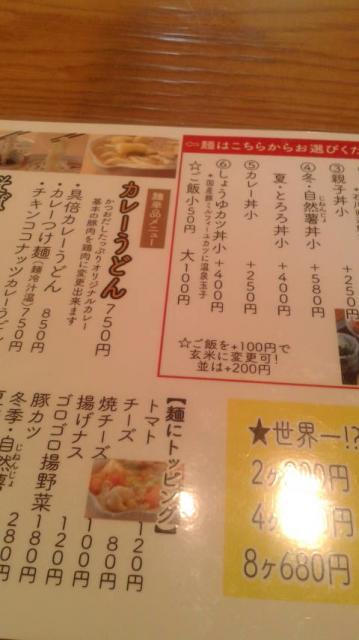 ⇦麺はこちらからお選びくだ
③親子丼小 +250
④冬・自然薯丼小 +580円
じねんじょ
夏・とろろ丼小 +400円
⑤カレー丼小 +250円
⑥しょうゆカツ丼小 +400円
＊国産豚ミルフィーユカツに温泉玉子
☆ご飯小50円 大100円
☆ご飯を+100円で
玄米に変更可!
並は+200円
麺単品メニュー
カレーうどん 750円
かつおだしたっぷりオリジナルカレー
基本の豚肉を鶏肉に変更出来ます
・具倍カレーうどん 850円
・カレーつけ麺(麺冷汁温)750円
・チキンココナッツカレーうどん
【麺にトッピング】
トマト 120円
チーズ 80円
焼チーズ 100円
揚げナス 120円
ゴロゴロ揚野菜 180円
豚カツ 280円
冬季・自然薯
じねんじょ
★世界一!?
2ヶ
4ヶ 円
8ヶ680円